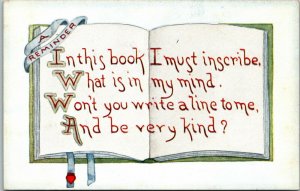 A
REMINDER
In this book I must inscribe,
What is in my mind.
Won't you write a line to me,
And be very kind?